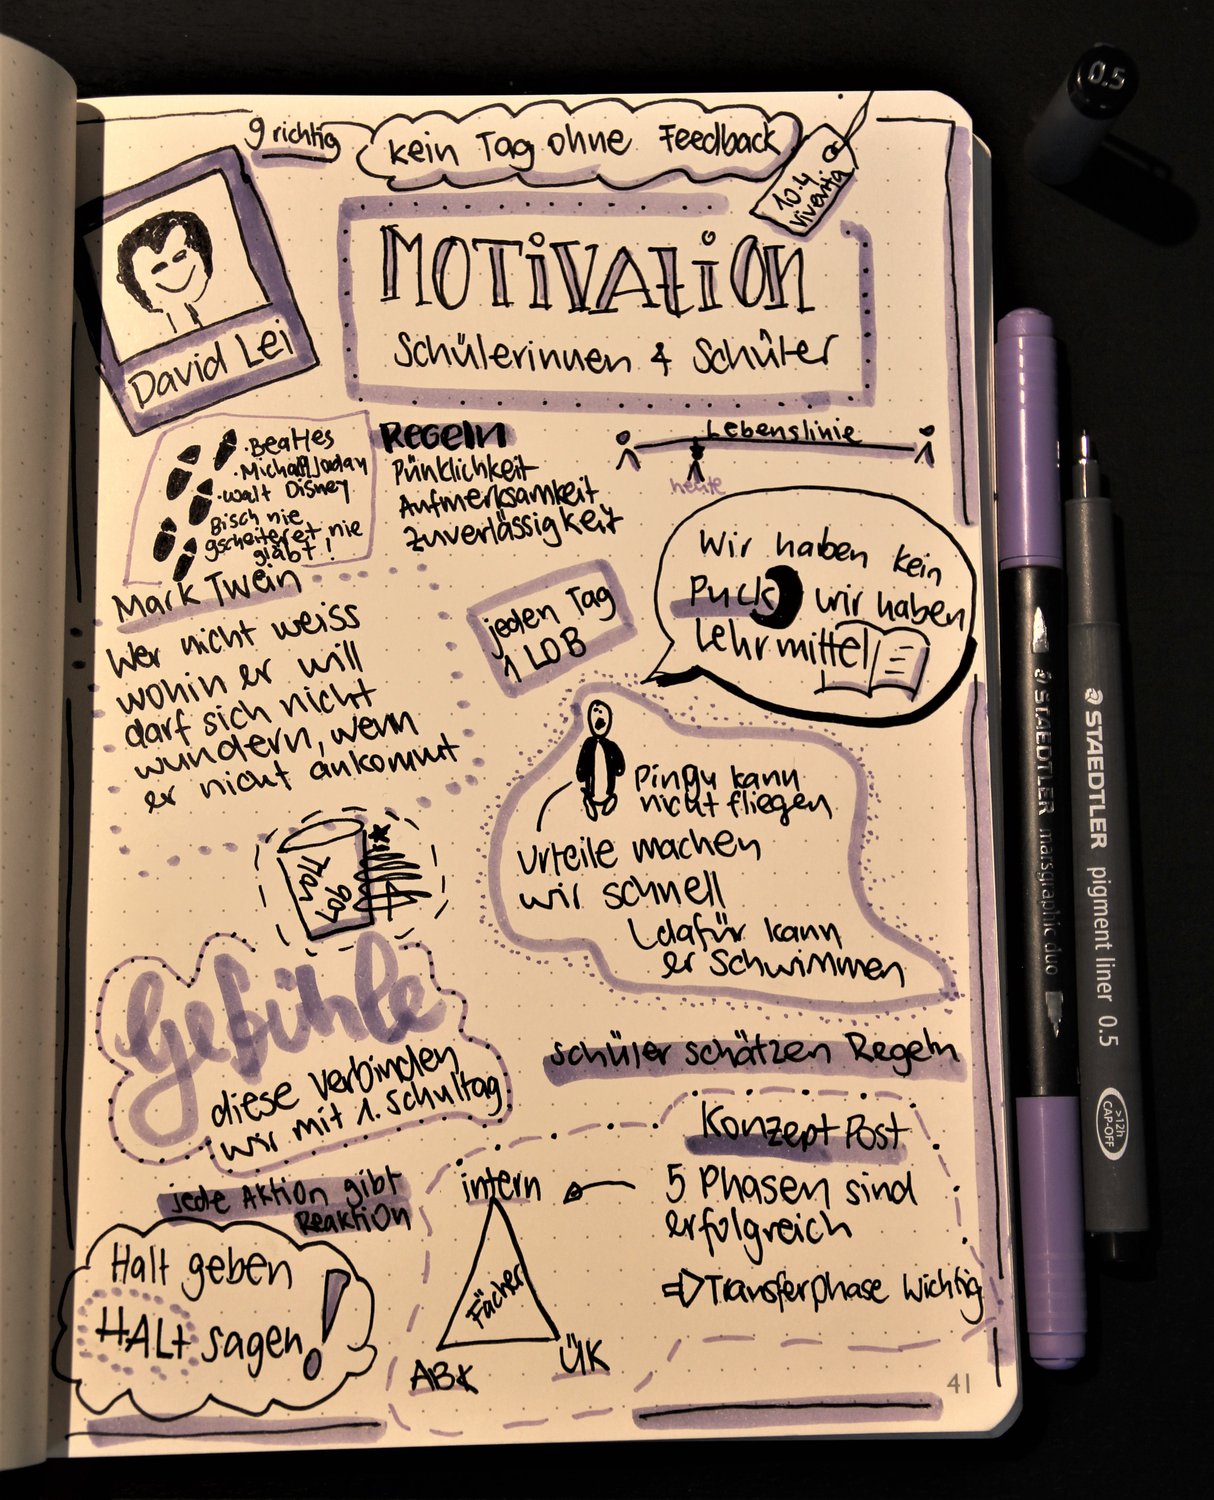 9 richtig
kein Tag ohne Feedback
10.4
viventa
MOTiVAtiON
Schülerinnen & Schüler
David Lei
• Beatles
• Michael Jodan
• Walt Disney
Bisch nie
gscheiteret nie
gläbt!
Regeln
Pünklichkeit
Aufmerksamkeit
Zuverlässigkeit
Lebenslinie
heute
Wir haben kein
Puck wir haben
Lehrmittel
jeden Tag
1 LOB
Mark Twein
Wer nicht weiss
wohin er will
darf sich nicht
wundern, wenn
er nicht ankommt
Pingu kann
nicht fliegen
Urteile machen
wir schnell
dafür kann
er schwimmen
Gefühle
diese verbinden
wir mit 1. Schultag
Schüler schätzen Regeln
Konzept Post
5 Phasen sind
erfolgreich
⇒ Transferphase wichtig
intern
Fächer
ABK
ÜK
jede Aktion gibt
Reaktion
Halt geben
HALt sagen!
41
0.5
STAEDTLER marsgraphic duo
STAEDTLER pigment liner 0.5
>12h
CAP-OFF